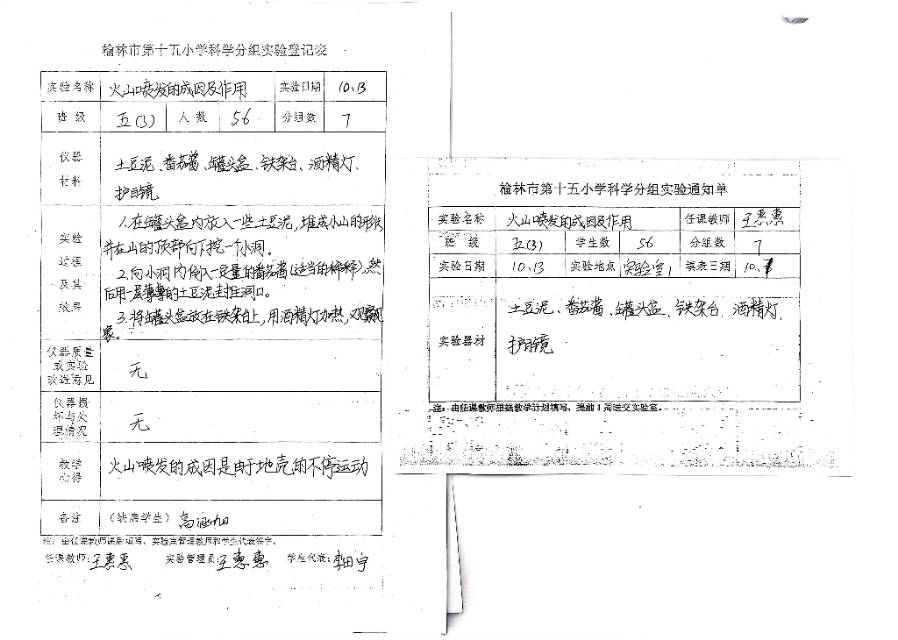 榆林市第十五小学科学分组实验登记表
实验名称 火山喷发的成因及作用 实验日期 10.13
班 级 五(3) 人 数 56 分组数 7
仪器材料 土豆泥、番茄酱、罐头盒、铁架台、酒精灯、
护目镜
实验过程及其效果 1.在罐头盒内放入一些土豆泥,堆成小山的形状
并在山的顶部向下挖一个小洞。
2.向小洞内倒入一定量的番茄酱(适当的稀释),然
后用一层薄薄的土豆泥封住洞口。
3.将罐头盒放在铁架台上,用酒精灯加热,观察现
象。
仪器质量或实验改进意见 无
仪器损坏与处理情况 无
教学心得 火山喷发的成因是由于地壳的不停运动
备注 (缺席学生)
注:由任课教师课后填写,实验室管理教师和学生代表签字。
任课教师:王惠惠 实验管理员:王惠惠 学生代表:
榆林市第十五小学科学分组实验通知单
实验名称 火山喷发的成因及作用 任课教师 王惠惠
班 级 五(3) 学生数 56 分组数 7
实验日期 10.13 实验地点 实验室1 填表日期 10.
实验器材 土豆泥、番茄酱、罐头盒、铁架台、酒精灯、
护目镜
注:由任课教师根据教学计划填写,提前1周送交实验室。